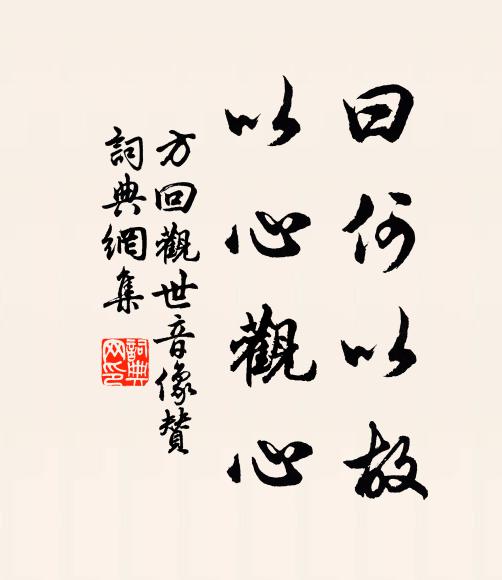 曰何以故
以心觀心
方回觀世音像贊
詞典網集
詞典網印